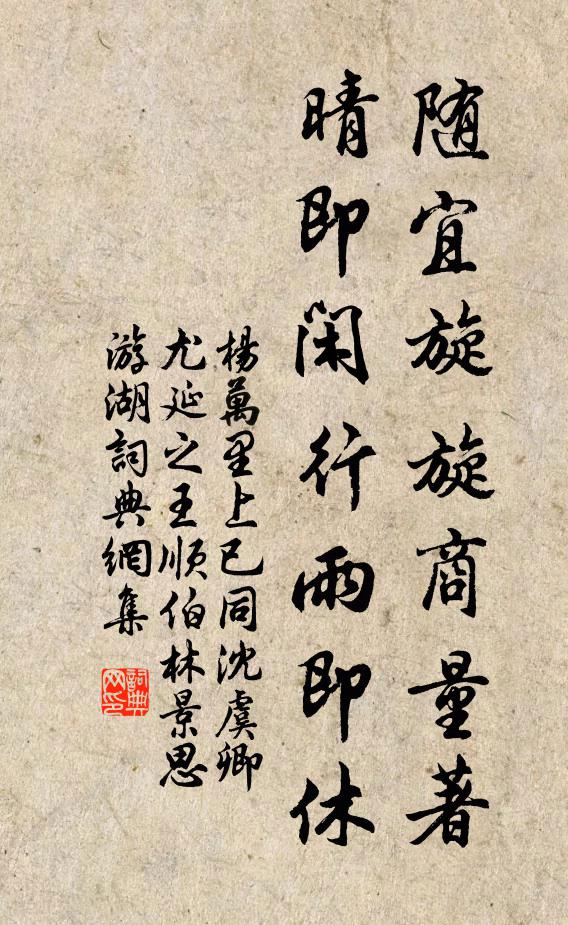 随宜旋旋商量著
晴即閑行雨即休
楊萬里上巳同沈虞卿
尤延之王順伯林景思
游湖詞典網集
詞典
网印